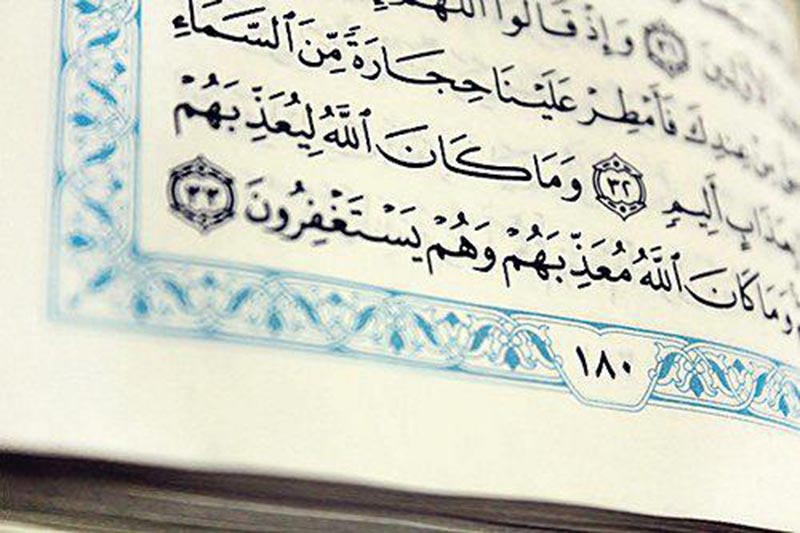 الأولين ﴿٣١﴾ وَإِذْ قَالُوا اللَّهُمَّ
مِنْ عِندِكَ فَأَمْطِرْ عَلَيْنَا حِجَارَةً مِّنَ ٱلسَّمَآءِ
بِعَذَابٍ أَلِيمٍ ﴿٣٢﴾ وَمَا كَانَ ٱللَّهُ لِيُعَذِّبَهُمْ
وَمَا كَانَ ٱللَّهُ مُعَذِّبَهُمْ وَهُمْ يَسْتَغْفِرُونَ ﴿٣٣﴾
١٨٠